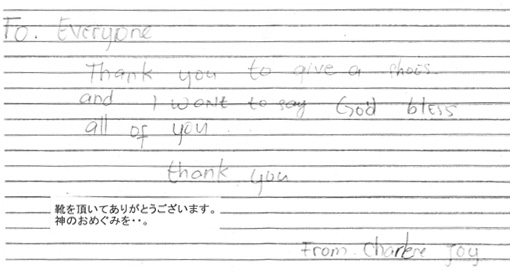 To. Everyone
Thank you to give a shoes.
and I want to say God bless
all of you.
thank you
靴を頂いてありがとうございます。
神のおめぐみを・・。
From. Joy